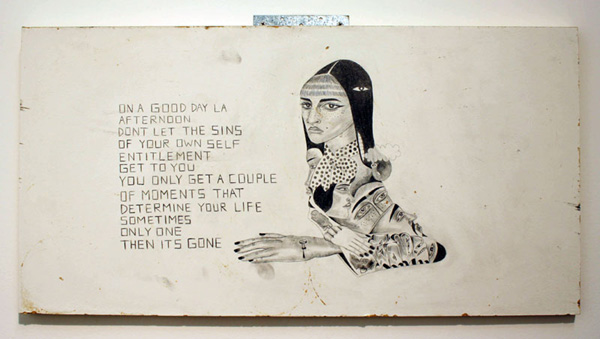 ON A GOOD DAY LA
AFTERNOON
DONT LET THE SINS
OF YOUR OWN SELF
ENTITLEMENT
GET TO YOU
YOU ONLY GET A COUPLE
OF MOMENTS THAT
DETERMINE YOUR LIFE
SOMETIMES
ONLY ONE
THEN ITS GONE